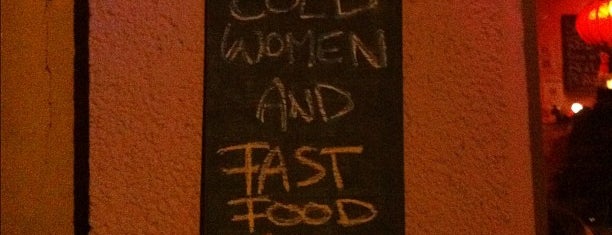 COLD
WOMEN
AND
FAST
FOOD